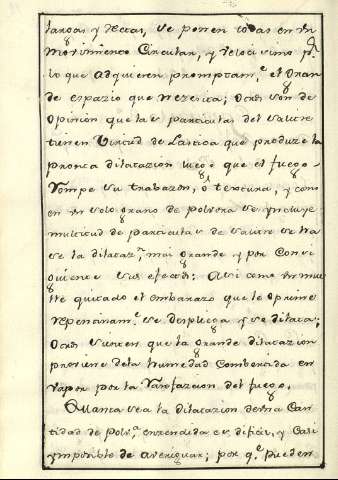 largas y rectas, se ponen todas en un
movimiento Circular, y velocissimo p.r
lo que adquieren promptam.te el Gran-
de espazio que nezesita; Otros son de
Opinion que las particulas del salitre
tienen Virtud de Lastica que produze la
pronta dilatazion luego que el fuego
rompe su trabazon, o textura, y como
en un solo grano de Polvora se yncluye
multitud de particulas de salitre se ha-
ze la dilataz.n mas grande y por Consi-
guiente sus efectos: Asi como un mue-
lle quitado el embarazo que le oprime
repentinam.te se despliega y se dilata;
Otros quieren que la Grande dilatazion
proviene dela humedad Combertida en
vapor por la Rarefazcion del fuego.
Quanta sea la dilatazion de una Can-
tidad de Polv.a enzendida es dificil, y Casi
ymposible de averiguar; por q.e pueden